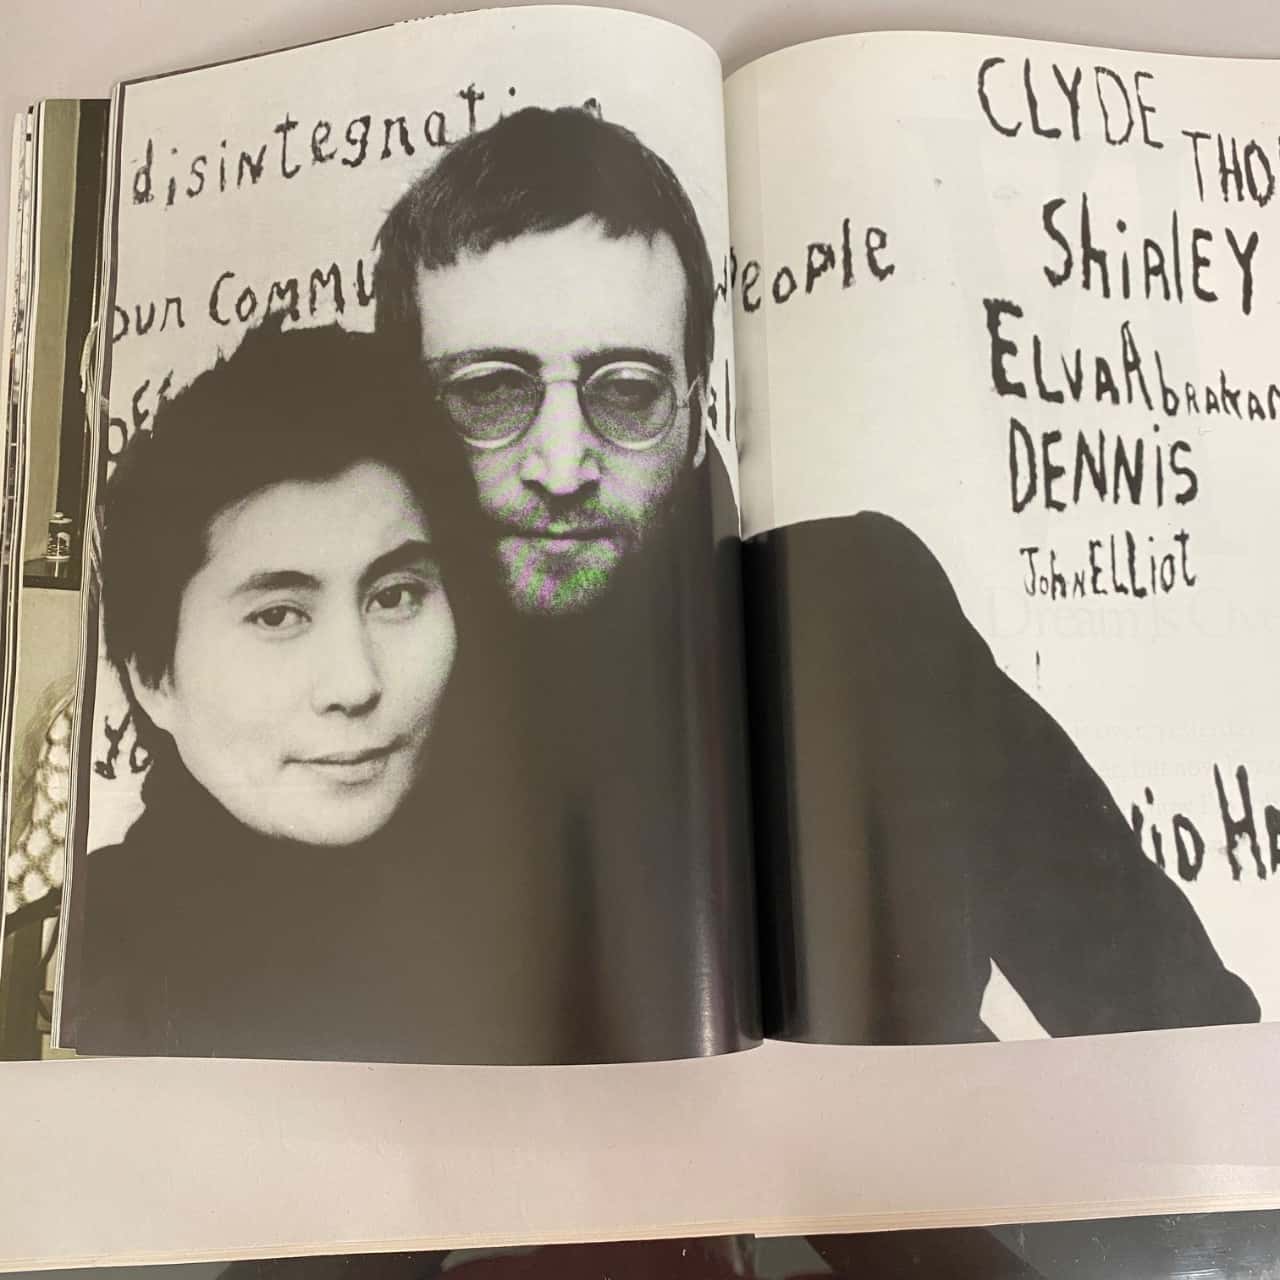 disintegnati
our Commu
People
CLYDE
THO
ShiRlEY
ELVAR brakar
DENNiS
JohN ELLiot
Dream Is Ove
iD HA